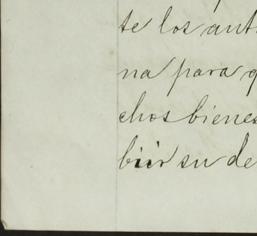 te los ant
na para q
chos biene
biir su de